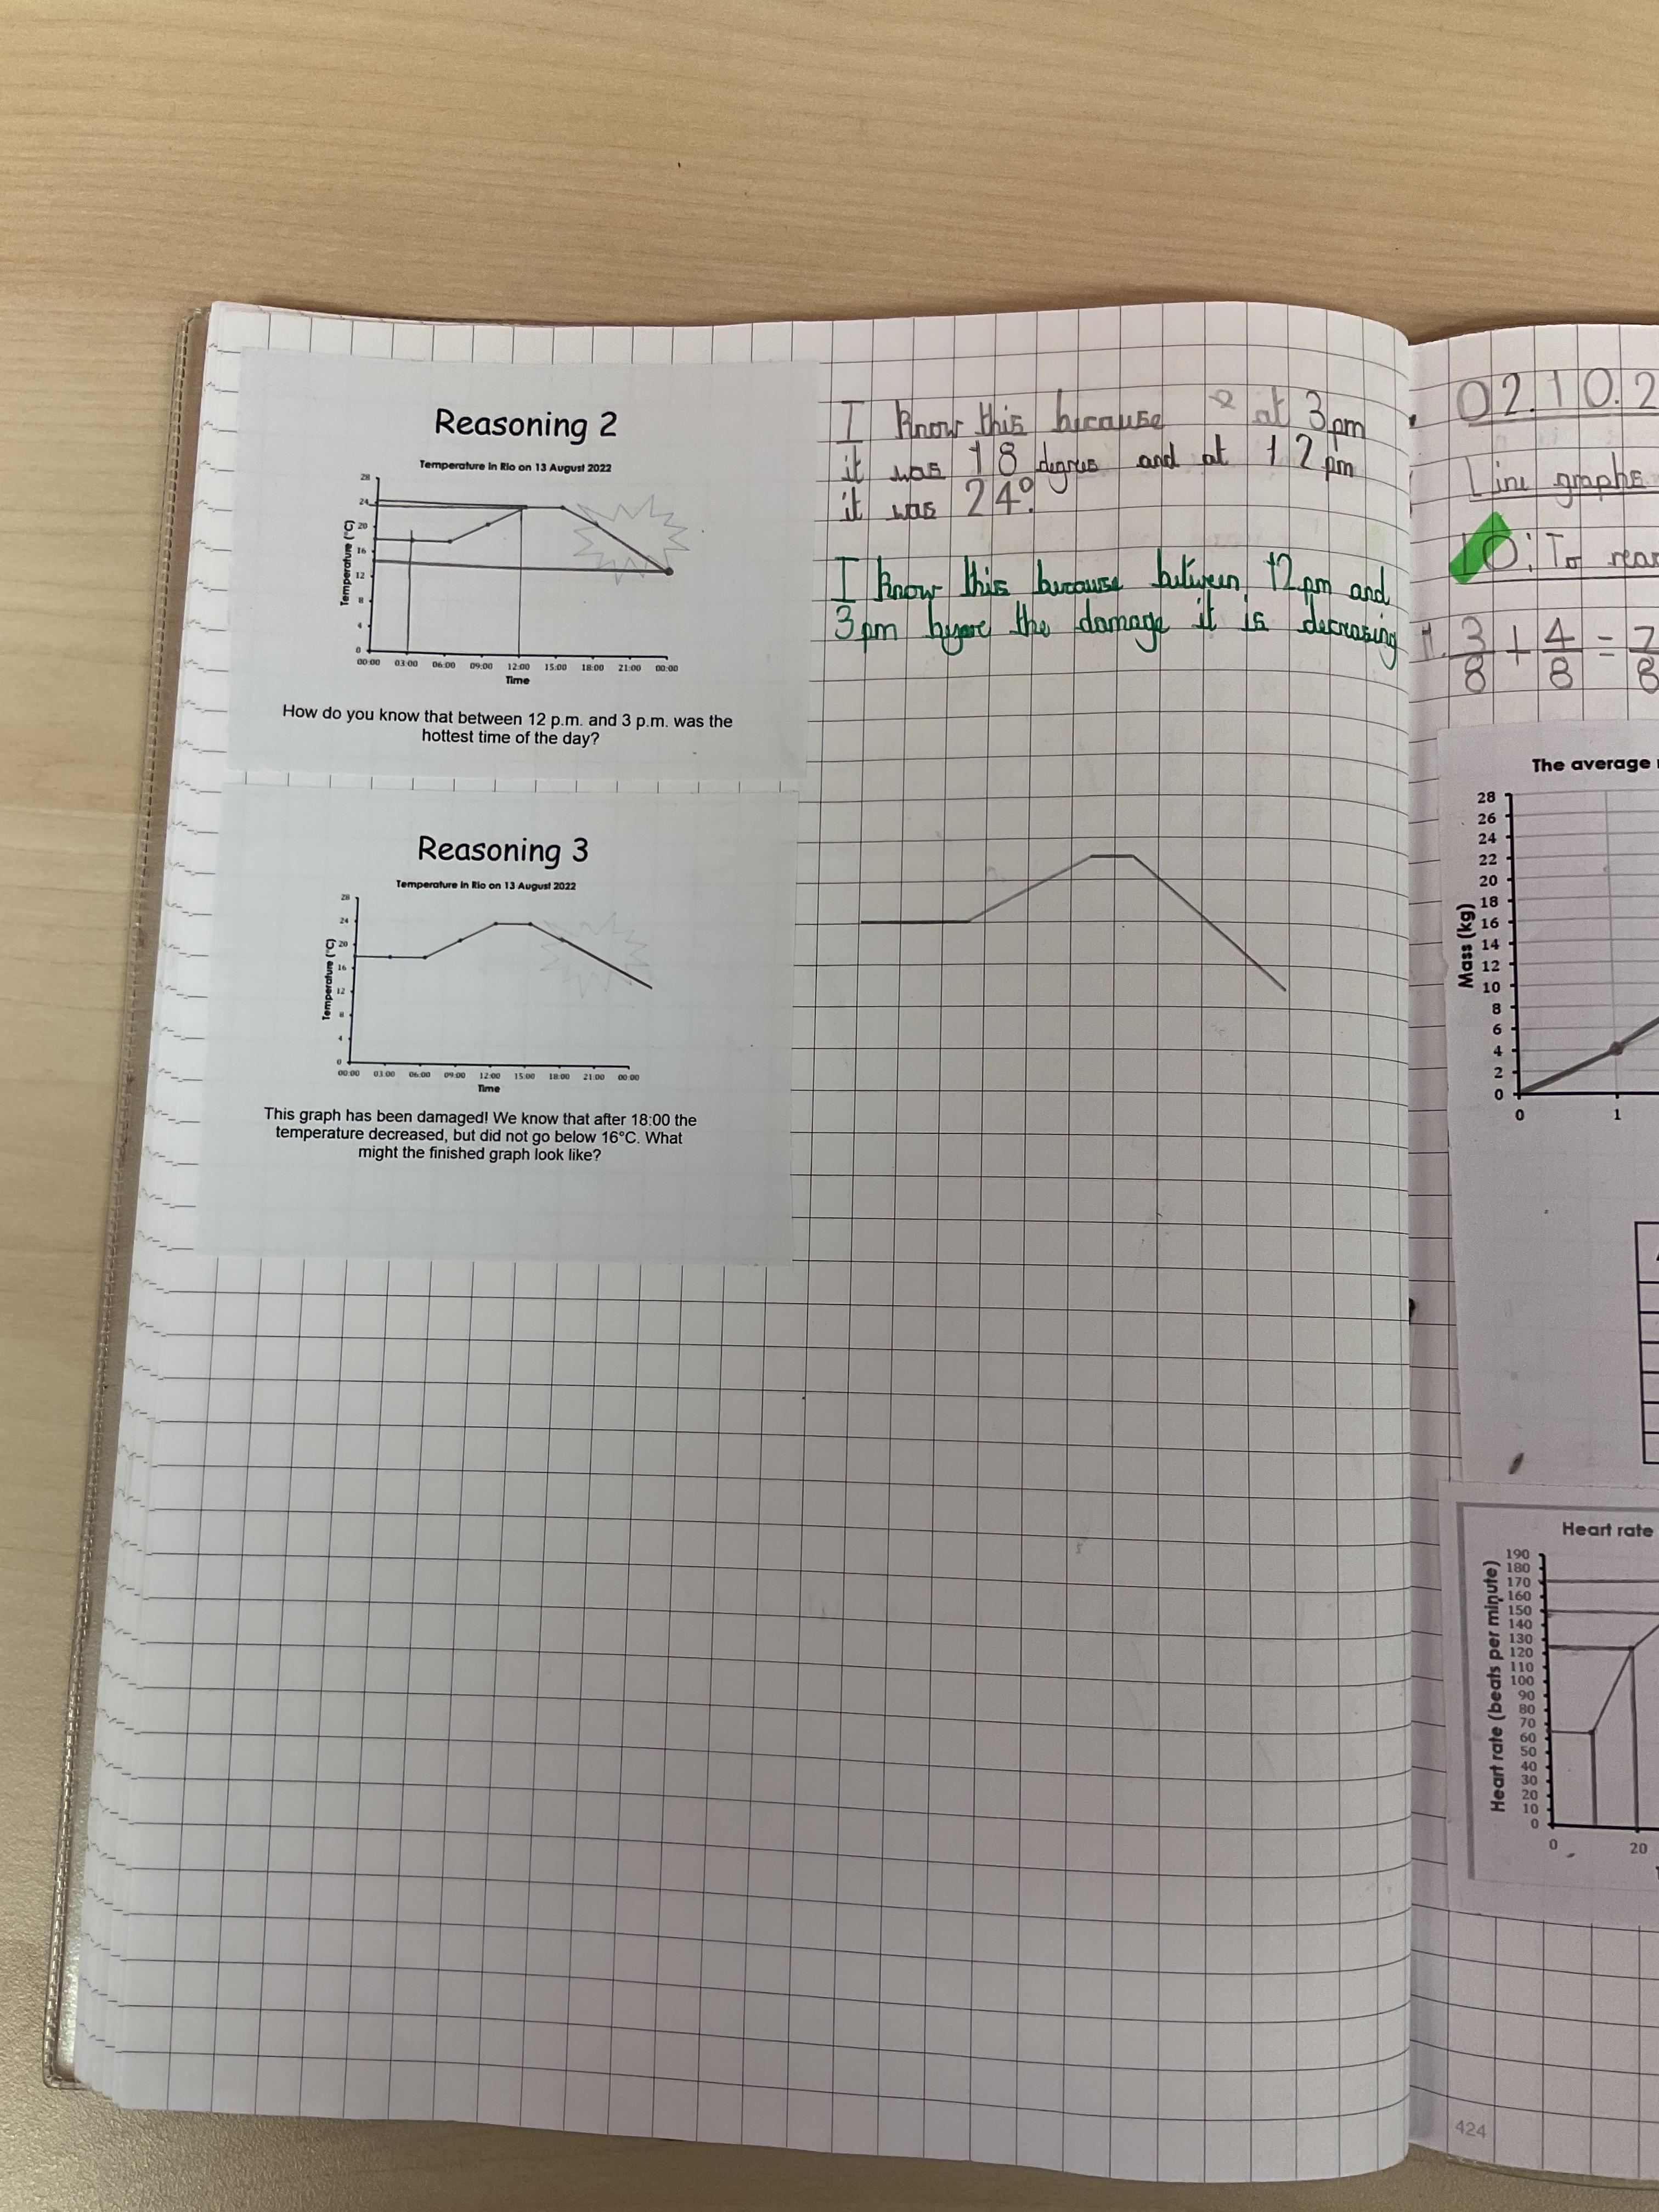 Reasoning 2
Temperature in Rio on 13 August 2022
28
24
20
16
12
8
4
0
Temperature (°C)
00:00 03:00 06:00 09:00 12:00 15:00 18:00 21:00 00:00
Time
How do you know that between 12 p.m. and 3 p.m. was the
hottest time of the day?
I know this because at 3pm
it was 18 degres and at 12pm
it was 24°.
I know this because between 12pm and
3pm the damage it is decreasing
Reasoning 3
Temperature in Rio on 13 August 2022
28
24
20
16
12
8
4
0
Temperature (°C)
00:00 03:00 06:00 09:00 12:00 15:00 18:00 21:00 00:00
Time
This graph has been damaged! We know that after 18:00 the
temperature decreased, but did not go below 16°C. What
might the finished graph look like?
02.10.2
Line graphs
LO: To
1. 3/8 + 4/8 = 7/8
The average
28
26
24
22
20
18
16
14
12
10
8
6
4
2
0
Mass (kg)
0 1
Heart rate
190
180
170
160
150
140
130
120
110
100
90
80
70
60
50
40
30
20
10
0
Heart rate (beats per minute)
0 20
424